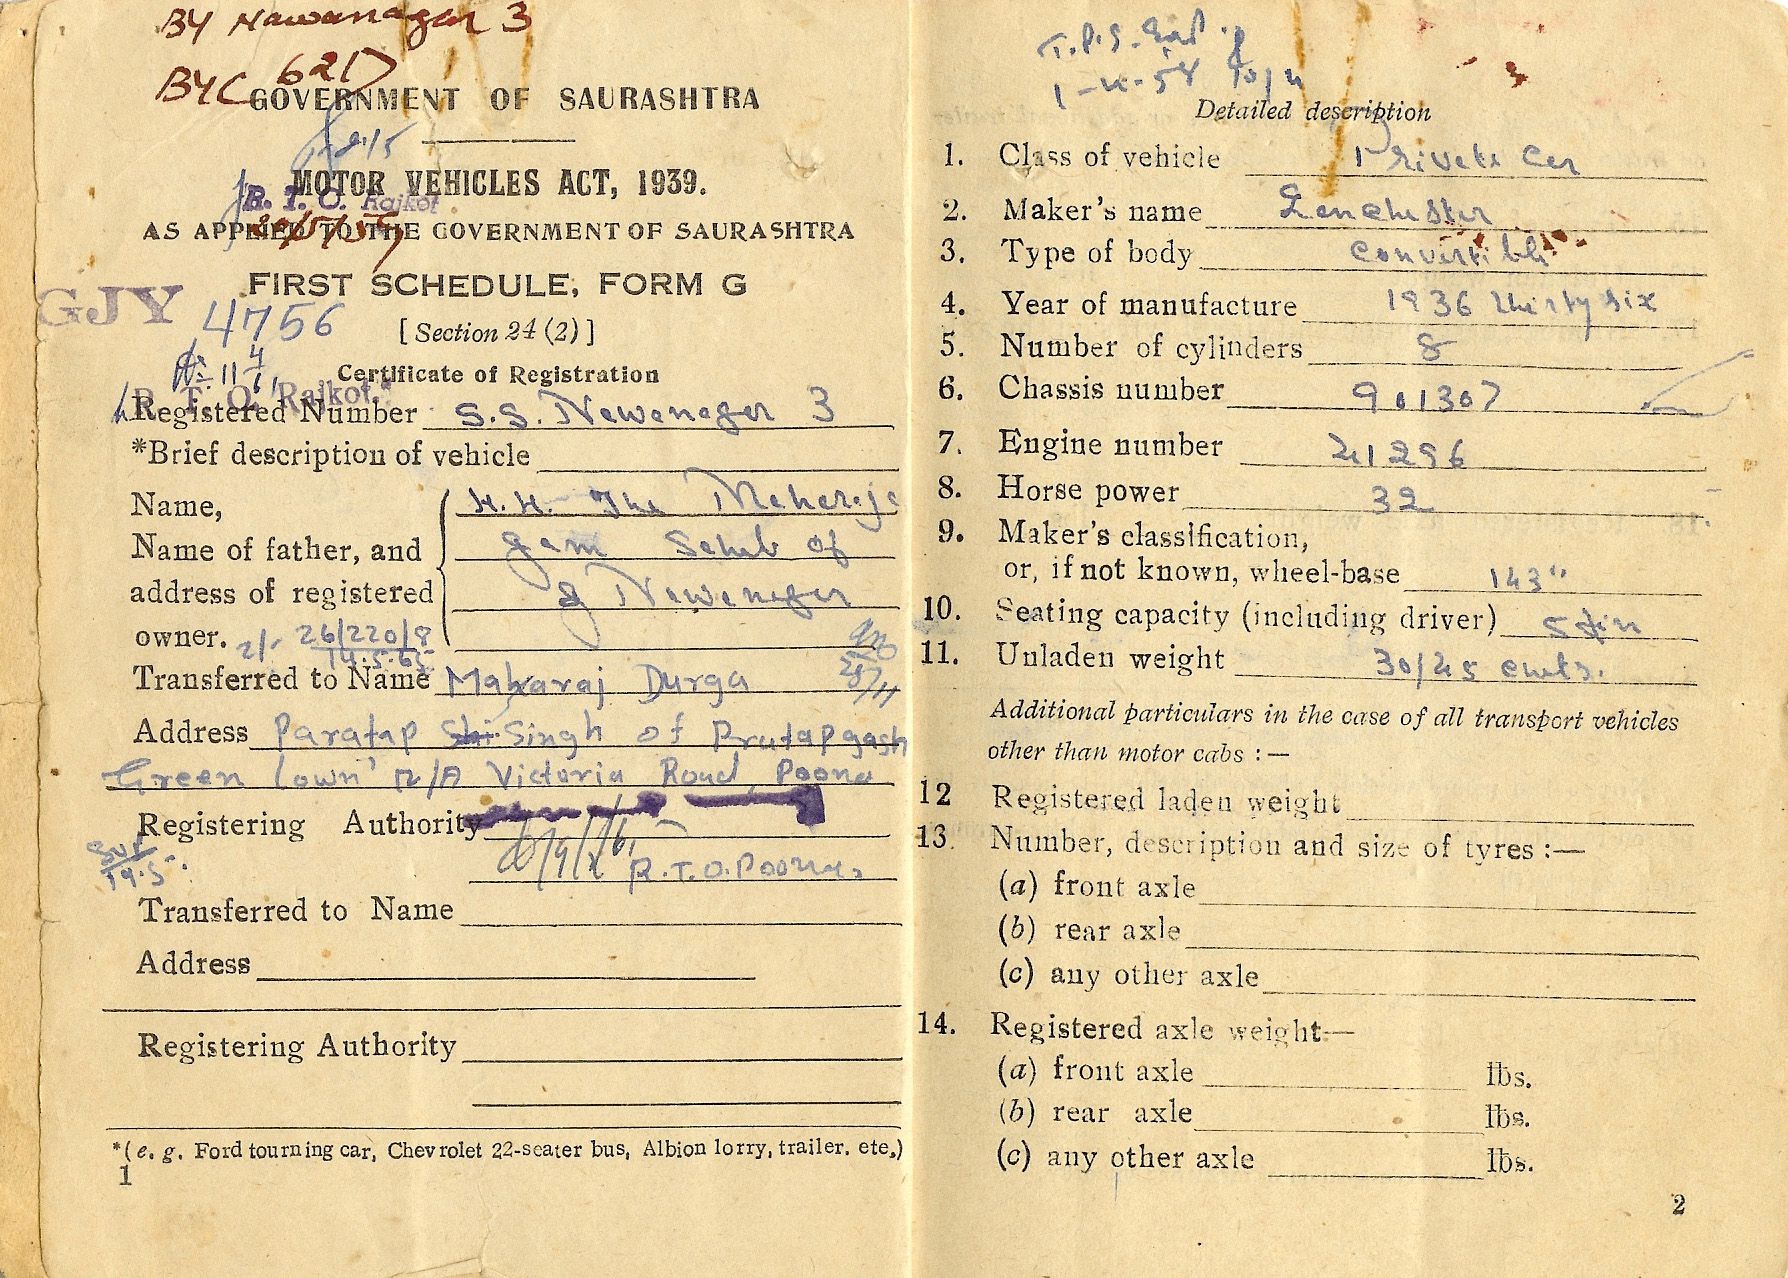 BY Nawanagar 3
BYC 621
GOVERNMENT OF SAURASHTRA
MOTOR VEHICLES ACT, 1939.
R. T. O. Rajkot
AS APPLIED TO THE GOVERNMENT OF SAURASHTRA
FIRST SCHEDULE, FORM G
GJY 4756
[ Section 24 (2) ]
Certificate of Registration
R. T. O. Rajkot.
Registered Number S.S. Nawanagar 3
*Brief description of vehicle
Name, H.H. The Maharaja
Name of father, and Jam Saheb of
address of registered Nawanagar
owner. 2/- 26/220/8
14.5.65
Transferred to Name Maharaj Durga
Address Paratap Singh of Prutapgash
Green Lown 12/A Victoria Road Poona
Registering Authority
R.T.O. Poona.
19.5
Transferred to Name
Address
Registering Authority
*(e. g. Ford tourning car, Chevrolet 22-seater bus, Albion lorry, trailer. ete,)
1
Detailed description
1. Class of vehicle Private Car
2. Maker's name Lanchester
3. Type of body Convertible
4. Year of manufacture 1936 thirty six
5. Number of cylinders 8
6. Chassis number 901307
7. Engine number 21296
8. Horse power 32
9. Maker's classification,
or, if not known, wheel-base 143"
10. Seating capacity (including driver) 5 five
11. Unladen weight 30/25 cwts.
Additional particulars in the case of all transport vehicles
other than motor cabs : —
12 Registered laden weight
13. Number, description and size of tyres :—
(a) front axle
(b) rear axle
(c) any other axle
14. Registered axle weight—
(a) front axle lbs.
(b) rear axle lbs.
(c) any other axle lbs.
2